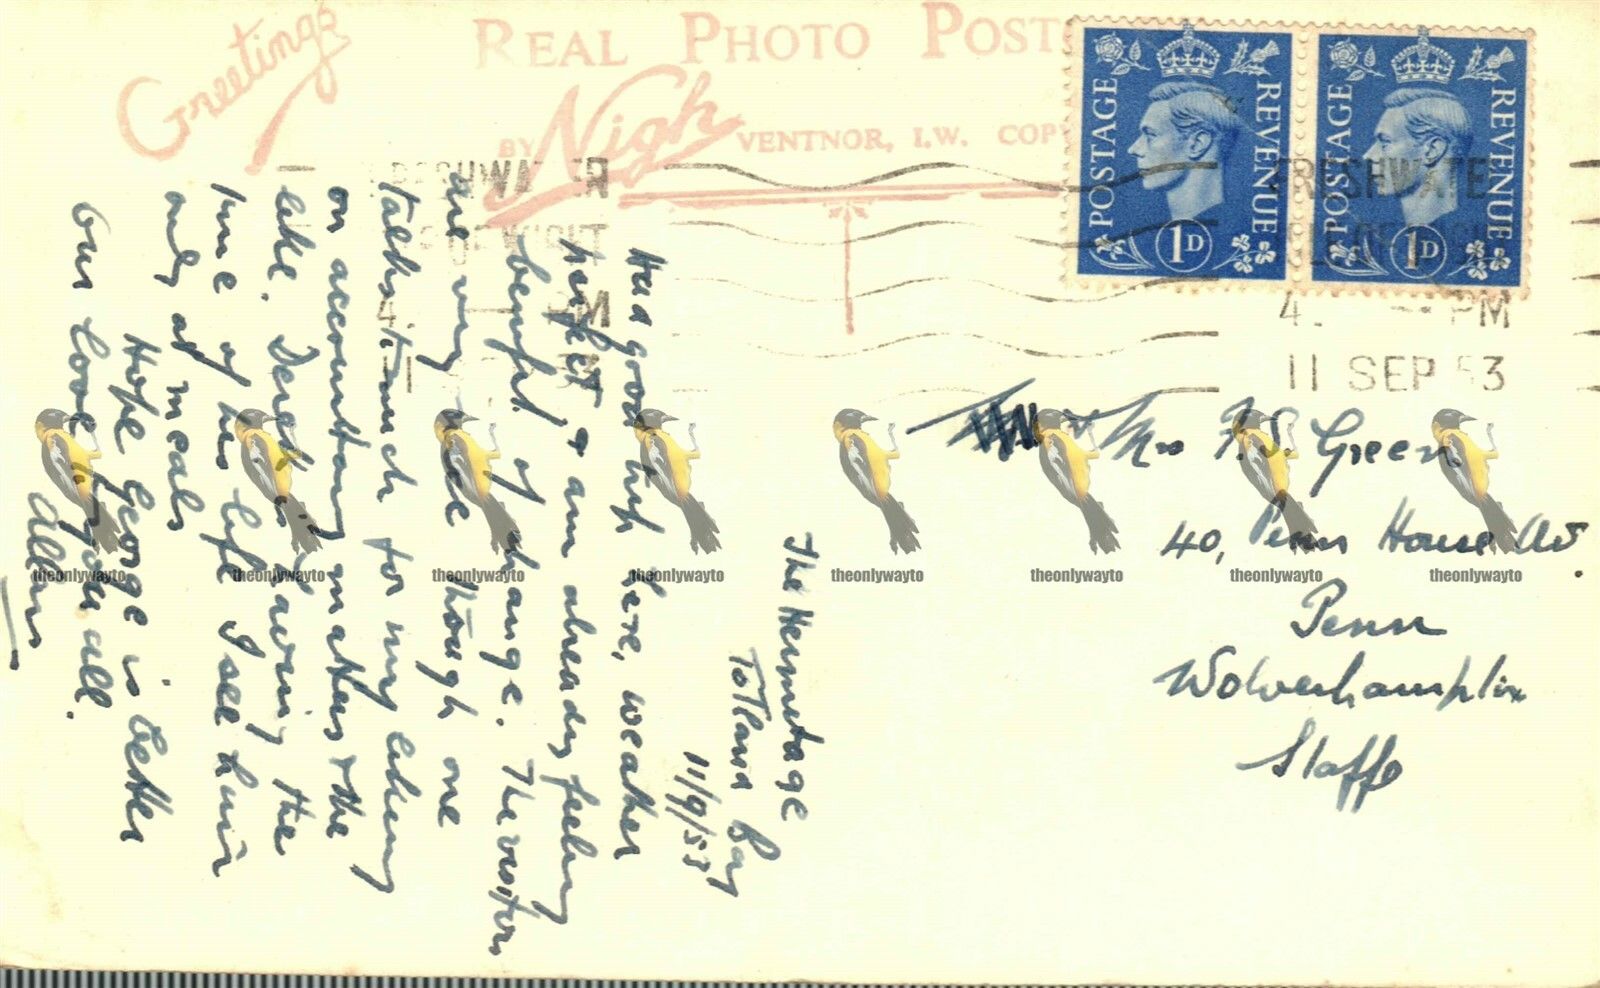 Greetings
REAL PHOTO POST
BY Nigh VENTNOR, I.W. COP
POSTAGE REVENUE 1D
POSTAGE REVENUE 1D
FRESHWATER
ISLE OF WIGHT
PM
FRESHWATER
ISLE OF WIGHT
4 PM
11 SEP 53
The Hermitage
Totland Bay
11/9/53
Had good trip here, weather
perfect, & am already feeling
benefit of change. The visitors
are very nice though one
talks too much for my liking
on accountancy matters & the
like. Derek is having the
time of his life I see him
only at meals
Hope George is better
Our love to you all.
Allan
Mrs F.S. Green
40, Penn House Av.
Penn
Wolverhampton
Staffs
theonlywayto theonlywayto theonlywayto theonlywayto theonlywayto theonlywayto theonlywayto theonlywayto